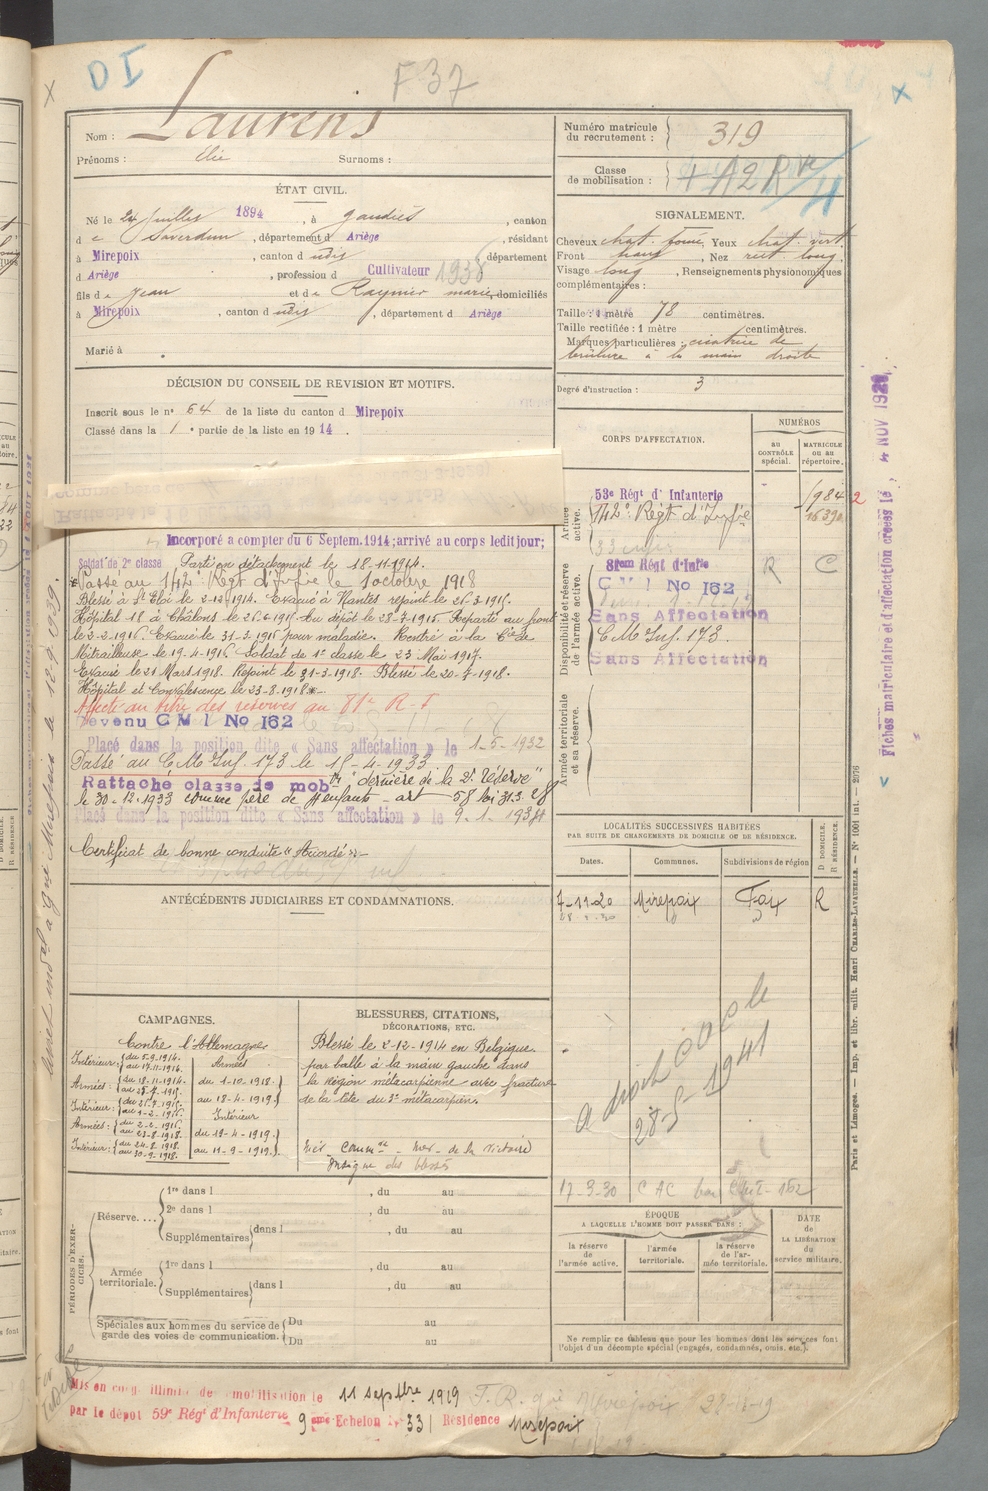 DI
F 37
Nom : Laurens
Prénoms : Elie Surnoms :
ÉTAT CIVIL.
Né le 24 Juillet 1894, à Gaudiès, canton
de Saverdun, département d Ariège, résidant
à Mirepoix, canton d udit département
d Ariège, profession d Cultivateur 1938
fils de Jean et de Raynier marie, domiciliés
à Mirepoix, canton d udit, département d Ariège
Marié à
DÉCISION DU CONSEIL DE REVISION ET MOTIFS.
Inscrit sous le n° 64 de la liste du canton d Mirepoix
Classé dans la 1 e partie de la liste en 1914.
Incorporé a compter du 6 Septem. 1914; arrivé au corps ledit jour;
Soldat de 2e classe Parti en détachement le 18.11.1914.
Passé au 142e Régt d'Infie le 1 octobre 1918
Blessé à St Eloi le 2-12-1914. Evacué à Nantes rejoint le 26.3.1915.
Hôpital 18 à Châlons le 26.6.1915. Au dépôt le 28-7-1915. Reparti au front
le 2-2-1916. Evacué le 31-3-1916 pour maladie. Rentré à la Cie de
Mitrailleuse le 19-4-1916. Soldat de 1e classe le 23 Mai 1917.
Evacué le 21 Mars 1918. Rejoint le 31-3-1918. Blessé le 20-7-1918.
Hôpital et Convalescence le 23-8-1918.
Affecté au titre des réserves au 81e R-I
Devenu C M I No 162
Placé dans la position dite « Sans affectation » le 1-5-1932
Passé au C M Inf 173 le 15-4-1933
Rattaché classe de mob on "dernière de la 2e Réserve"
le 30-12-1933 comme père de 4 enfants - art 58 loi 31.3.28
Placé dans la position dite « Sans affectation » le 9-1-1934
Certificat de bonne conduite « Accordé »
ANTÉCÉDENTS JUDICIAIRES ET CONDAMNATIONS.
CAMPAGNES.
Contre l'Allemagne
Intérieur : du 5-9-1914. au 17-11-1914.
Armées : du 18-11-1914. au 25-7-1915.
Intérieur : du 26-7-1915. au 1-2-1916.
Armées : du 2-2-1916. au 23-8-1918.
Intérieur : du 24-8-1918. au 30-9-1918.
Armées
du 1-10-1918.
au 18-4-1919.
Intérieur
du 19-4-1919.
au 11-9-1919.
BLESSURES, CITATIONS,
DÉCORATIONS, ETC.
Blessé le 2-12-1914 en Belgique.
par balle à la main gauche dans
la région métacarpienne avec fracture
de la tête du 3e métacarpien.
Méd. Commve - Méd - de la Victoire
Insigne des blessés
PÉRIODES D'EXERCICES.
Réserve....
1re dans l , du au
2e dans l , du au
Supplémentaires dans l , du au
Armée territoriale.
1re dans l , du au
Supplémentaires dans l , du au
Spéciales aux hommes du service de garde des voies de communication.
Du au
Du au
Numéro matricule du recrutement : 319
Classe de mobilisation :
SIGNALEMENT.
Cheveux chat. foncé, Yeux chat. vert
Front haut, Nez rect. long.
Visage long, Renseignements physionomiques
complémentaires :
Taille : 1 mètre 78 centimètres.
Taille rectifiée : 1 mètre centimètres.
Marques particulières : cicatrice de
brûlure à la main droite
Degré d'instruction : 3
CORPS D'AFFECTATION.
NUMÉROS
AU CONTRÔLE spécial.
MATRICULE OU AU RÉPERTOIRE.
Armée active.
53e Régt d'Infanterie
142e Régt d'Infie
Disponibilité et réserve de l'armée active.
81em Régt d'Infie R C
C M I No 162
Sans Affectation
C M Inf 173.
Sans Affectation
Armée territoriale et sa réserve.
LOCALITÉS SUCCESSIVES HABITÉES
PAR SUITE DE CHANGEMENTS DE DOMICILE OU DE RÉSIDENCE.
Dates. Communes. Subdivisions de région D DOMICILE. R RÉSIDENCE.
7-11-20 Mirepoix Foix R
28-5-1941
17-3-30
ÉPOQUE
A LAQUELLE L'HOMME DOIT PASSER DANS :
la réserve de l'armée active.
l'armée territoriale.
la réserve de l'armée territoriale.
DATE de LA LIBÉRATION du service militaire.
Ne remplir ce tableau que pour les hommes dont les services font
l'objet d'un décompte spécial (engagés, condamnés, omis, etc.).
Fiches matriculaire et d'affectation créées le 4 NOV 192
Paris et Limoges. — Imp. et libr. milit. Henri CHARLES-LAVAUZELLE. — N° 1001 int. — 2076
Mis en congé illimité de démobilisation le 11 septbre 1919
par le dépôt 59e Régt d'Infanterie 9eme Echelon N° 331 Résidence Mirepoix